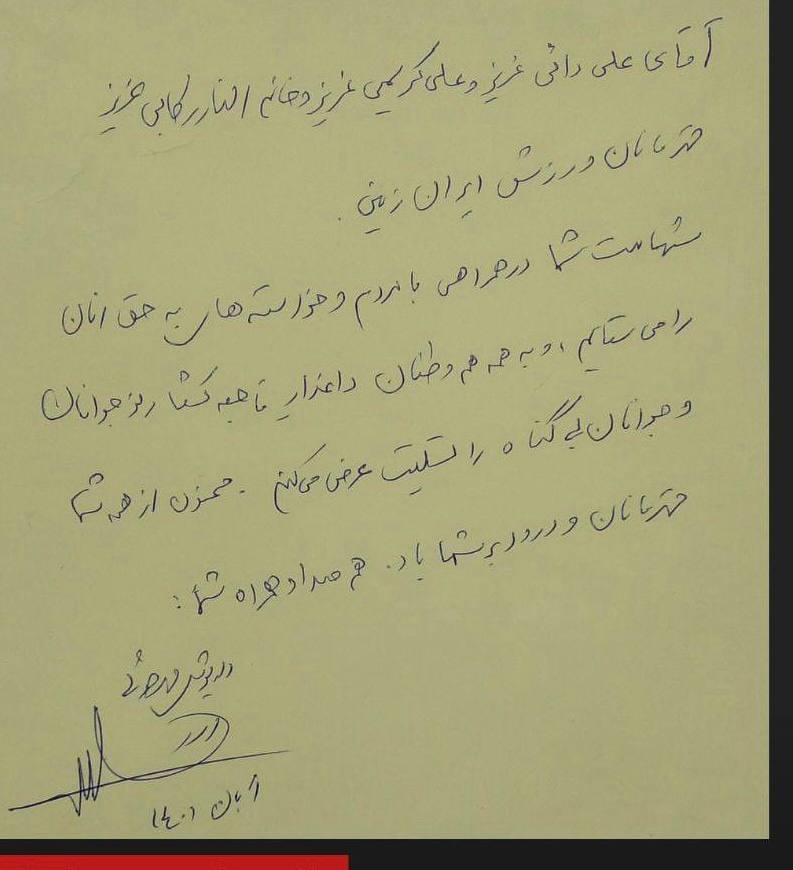 آقای علی دائی عزیز و علی کریمی عزیز و خانم الناز رکابی عزیز
قهرمانان ورزش ایران زمین.
شهامت شما در همراهی با مردم و خواسته های به حق انان
را می ستایم، و به همه هم وطنان داغدار فاجعه کشتار نوجوانان
و جوانان بی گناه را تسلیت عرض می کنم. ممنون از همه شما
قهرمانان و درود بر شما باد. هم صدا و همراه شما:
داریوش مهرجوئی
آبان ۱۴۰۱